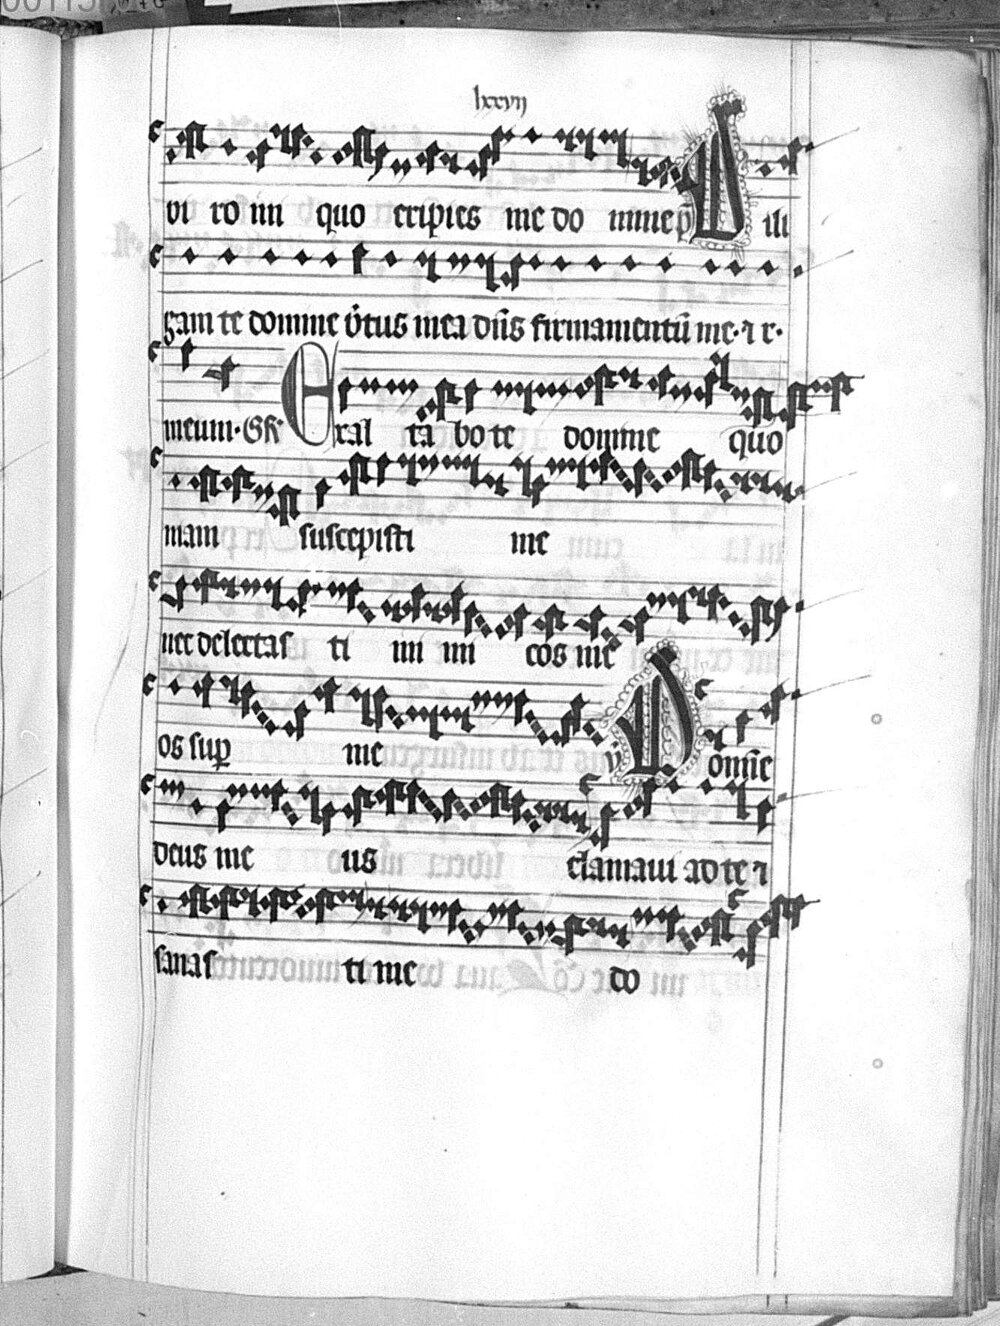 lxxvij
vi ro ini quo eripies me do mine p̄ Dili
gam te domine v̄tus mea dn̄s firmamentū me· ⁊ r·
meum· Gr̄ Exal ta bo te domine quo
niam suscepisti me
nec delectas ti ini mi cos me
os sup me v̄ Domie
deus me us clamaui ad te ⁊
sanas ti me do